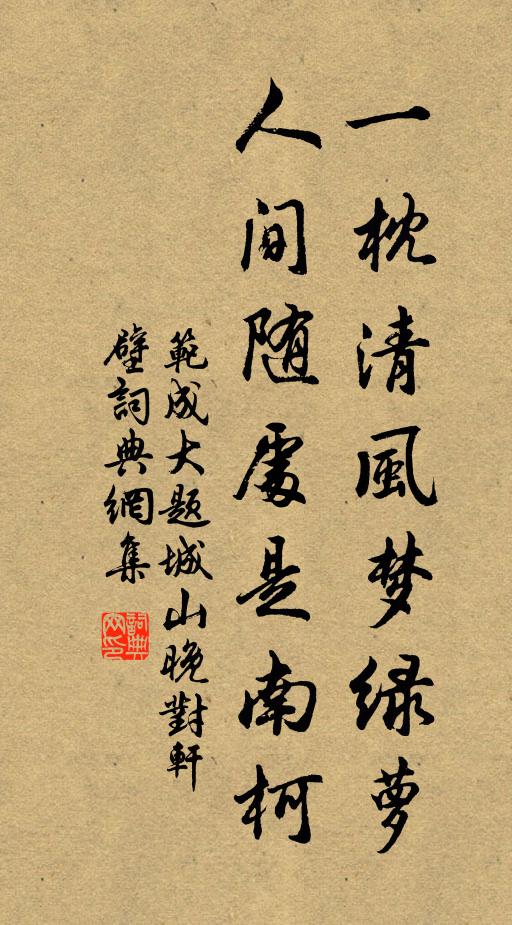 一枕清風梦绿萝
人间随處是南柯
範成大题城山晚對軒
壁詞典網集
詞典
网印